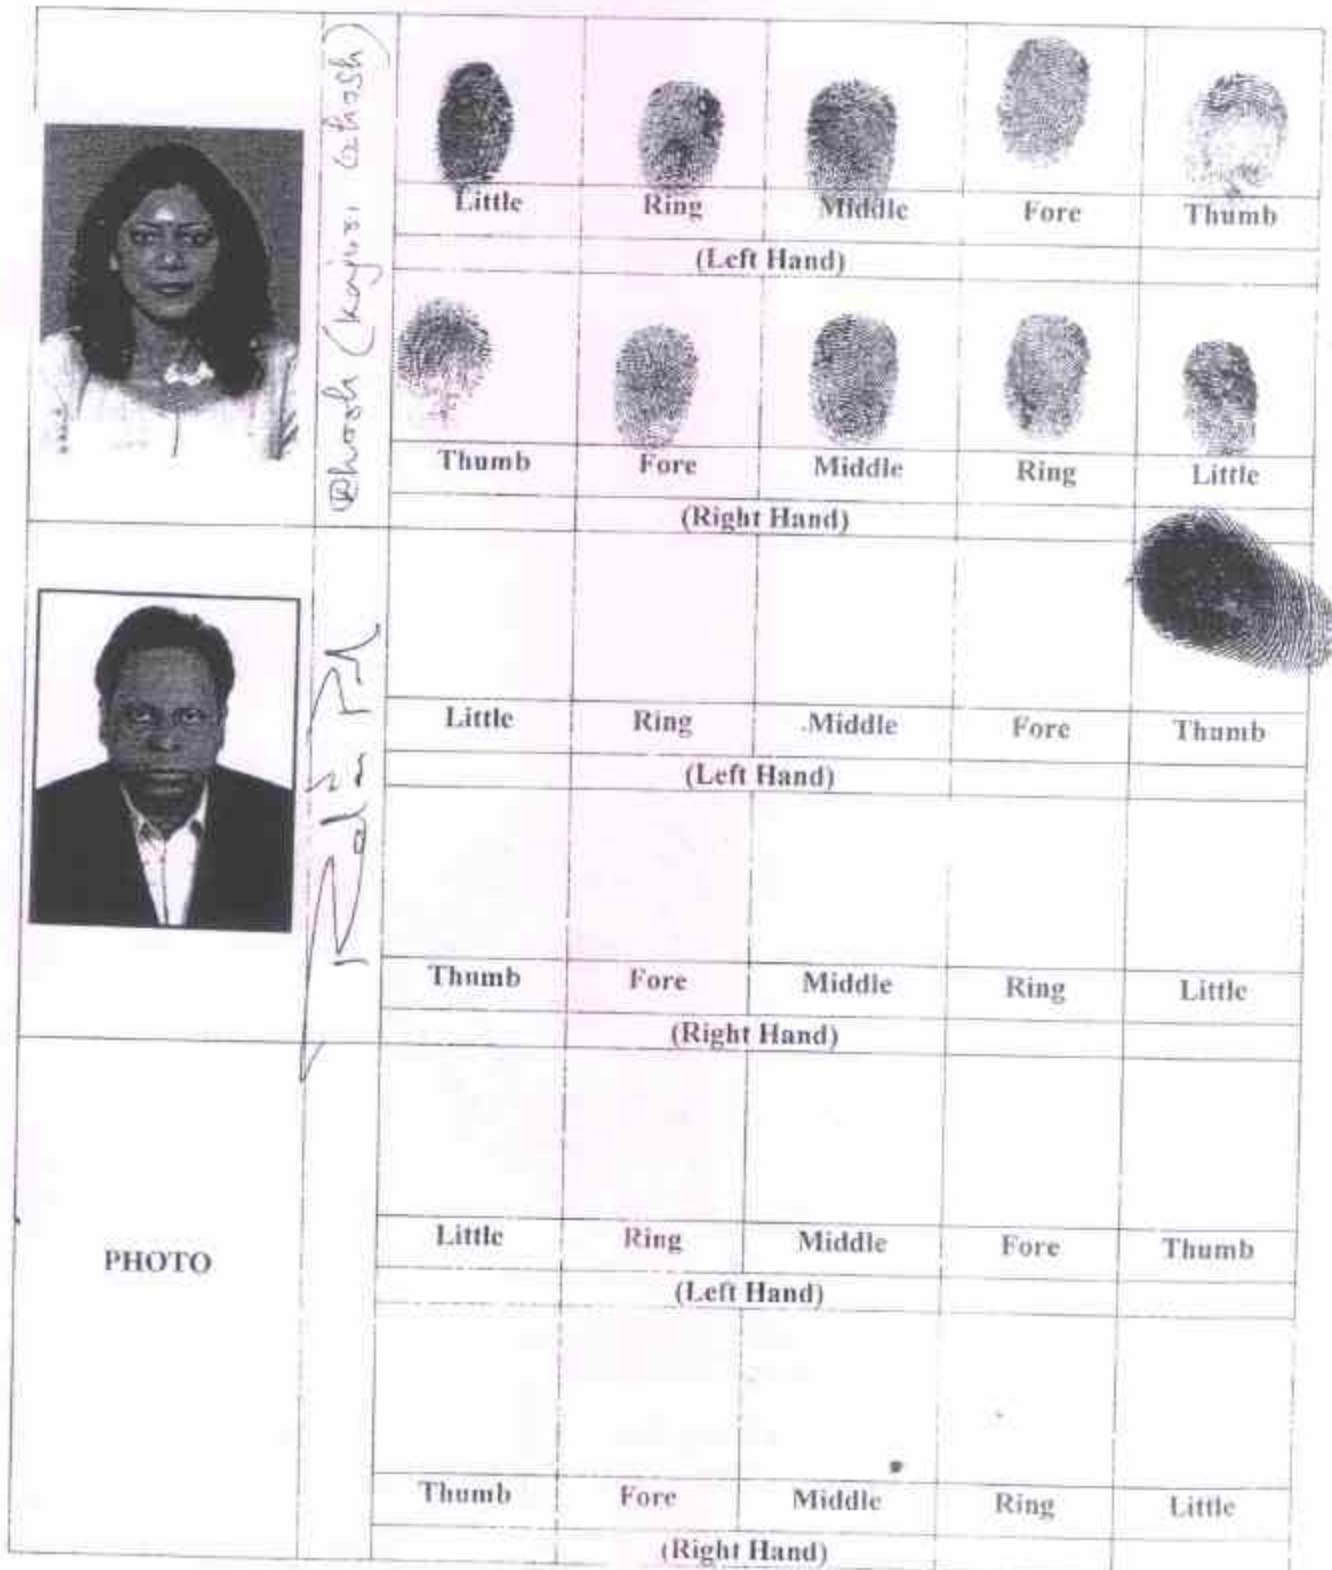 Little Ring Middle Fore Thumb
(Left Hand)
Thumb Fore Middle Ring Little
(Right Hand)
Ghosh (Kajori Ghosh)
Little Ring Middle Fore Thumb
(Left Hand)
Thumb Fore Middle Ring Little
(Right Hand)
PHOTO
Little Ring Middle Fore Thumb
(Left Hand)
Thumb Fore Middle Ring Little
(Right Hand)